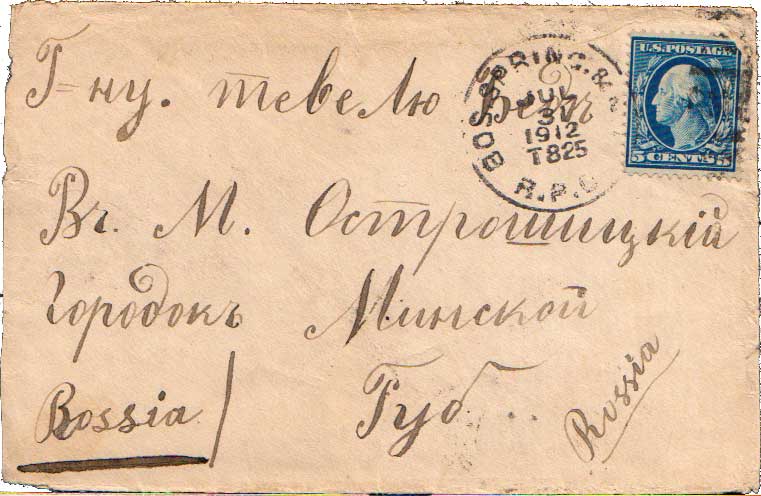 Г-ну. тевелю
BOS. SPRING.
JUL
31
1912
T825
R.P.O
U.S. POSTAGE
5 CENTS 5
Въ. М. Острошицкій
Городокъ Минской
Rossia / Губ.. Russia